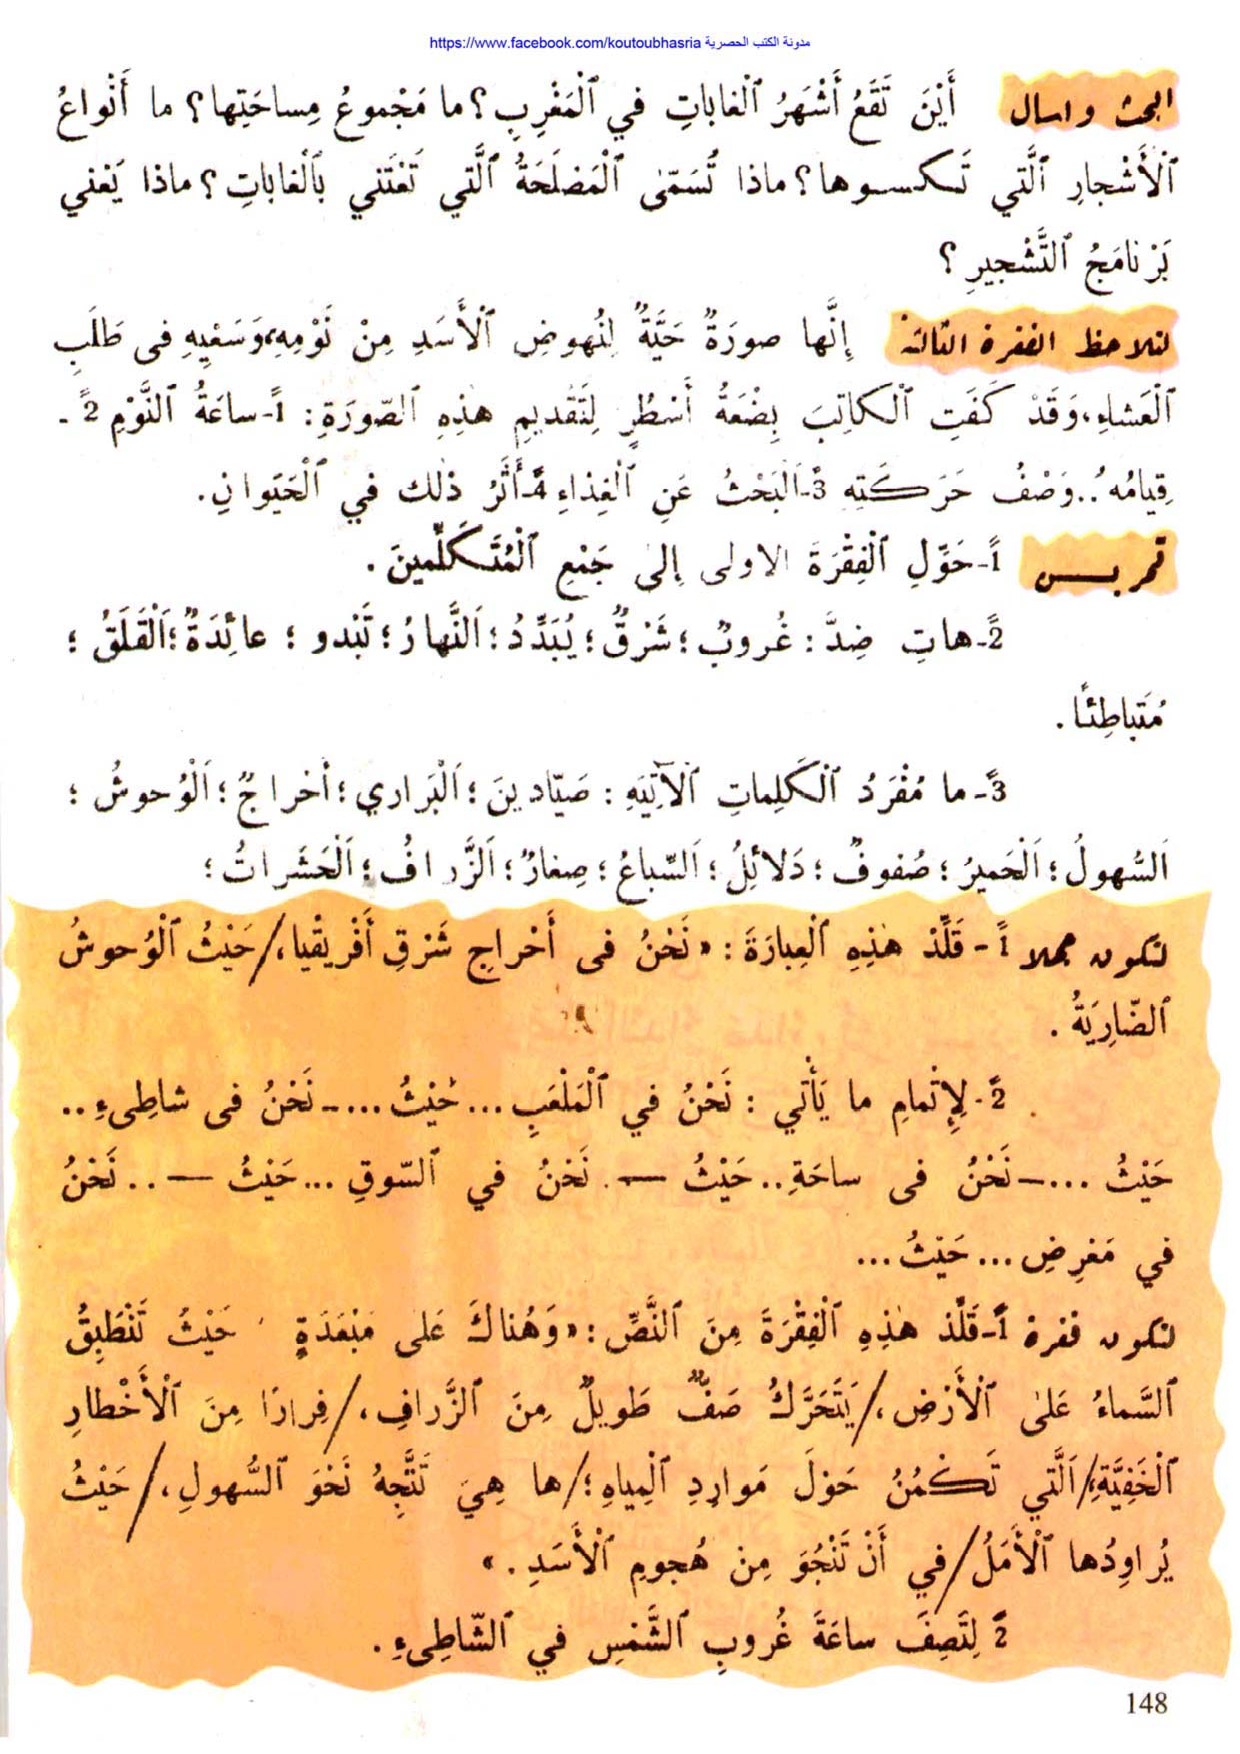 مدونة الكتب الحصرية https://www.facebook.com/koutoubhasria
ابحث واسأل أَيْنَ تَقَعُ أَشْهَرُ ٱلْغاباتِ في ٱلْمَغْرِبِ؟ ما مَجْموعُ مِساحَتِها؟ ما أَنْواعُ
ٱلْأَشْجارِ ٱلَّتي تَكْسوها؟ ماذا تُسَمّى ٱلْمَصْلَحَةُ ٱلَّتي تَعْتَني بِٱلْغاباتِ؟ ماذا يَعْني
بَرْنامَجُ ٱلتَّشْجيرِ؟
لنلاحظ الفقرة الثالثة إِنَّها صورَةٌ حَيَّةٌ لِنُهوضِ ٱلْأَسَدِ مِنْ نَوْمِهِ، وَسَعْيِهِ فى طَلَبِ
ٱلْعَشاءِ، وَقَدْ كَفَتِ ٱلْكاتِبَ بِضْعَةُ أَسْطُرٍ لِتَقْديمِ هٰذِهِ ٱلصّورَةِ: 1ً-ساعَةُ ٱلنَّوْمِ 2ً-
قِيامُهُ.. وَصْفُ حَرَكَتِهِ 3ً-اَلْبَحْثُ عَنِ ٱلْغِذاءِ 4ً-أَثَرُ ذٰلِكَ في ٱلْحَيَوانِ.
تمريـــن 1ً-حَوِّلِ ٱلْفِقْرَةَ الاولى إِلىٰ جَمْعِ ٱلْمُتَكَلِّمينَ.
2ً-هاتِ ضِدَّ: غُروبٌ؛ شَرْقٌ؛ يُبَدِّدُ؛ اَلنَّهارُ؛ تَبْدو؛ عائِدَةٌ؛ اَلْقَلَقُ؛
مُتَباطِئًا.
3ً-ما مُفْرَدُ ٱلْكَلِماتِ ٱلْآتِيَةِ: صَيّادينَ؛ اَلْبَراري؛ أَحْراجٌ؛ اَلْوُحوشُ؛
اَلسُّهولُ؛ اَلْحَميرُ؛ صُفوفٌ؛ دَلائِلُ؛ اَلسِّباعُ؛ صِغارٌ؛ اَلزَّرافُ؛ اَلْحَشَراتُ؛
لنكون جملا 1ً-قَلِّدْ هٰذِهِ ٱلْعِبارَةَ: «نَحْنُ فى أَحْراجِ شَرْقِ أَفْريقْيا،/حَيْثُ ٱلْوُحوشُ
ٱلضّارِيَةُ.
2ً-لِإِتْمامِ ما يَأْتي: نَحْنُ في ٱلْمَلْعَبِ... حَيْثُ...-نَحْنُ فى شاطِىءِ..
حَيْثُ ...-نَحْنُ فى ساحَةِ.. حَيْثُ -. نَحْنُ في ٱلسّوقِ... حَيْثُ -.. نَحْنُ
في مَعْرِضِ... حَيْثُ...
لنكون فقرة 1ً-قَلِّدْ هٰذِهِ ٱلْفِقْرَةَ مِنَ ٱلنَّصِّ: «وَهُناكَ عَلى مَبْعَدَةٍ حَيْثُ تَنْطَبِقُ
ٱلسَّماءُ عَلىٰ ٱلْأَرْضِ،/يَتَحَرَّكُ صَفٌّ طَويلٌ مِنَ ٱلزَّرافِ،/فِرارًا مِنَ ٱلْأَخْطارِ
ٱلْخَفِيَّةِ،/اَلَّتي تَكْمُنُ حَوْلَ مَوارِدِ ٱلْمِياهِ؛/ها هِيَ تَتَّجِهُ نَحْوَ ٱلسُّهولِ،/حَيْثُ
يُراوِدُها ٱلْأَمَلُ/في أَنْ تَنْجُوَ مِنْ هُجومِ ٱلْأَسَدِ.»
2ً لِتَصِفَ ساعَةَ غُروبِ ٱلشَّمْسِ في ٱلشّاطِىءِ.
148